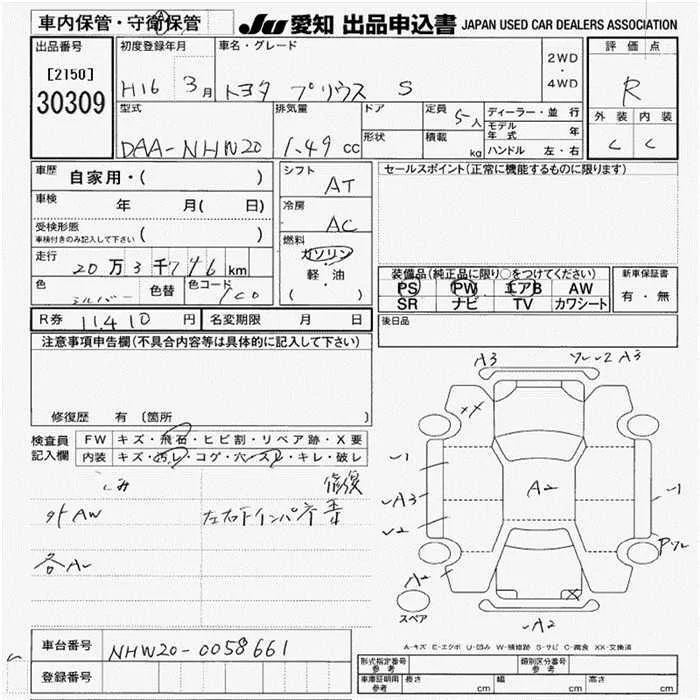 車内保管・守衛保管
JU 愛知 出品申込書 JAPAN USED CAR DEALERS ASSOCIATION
出品番号
[2150]
30309
初度登録年月
H16 3月
車名・グレード
トヨタ プリウス S
2WD
・
4WD
評価点
R
外装 内装
C C
型式
DAA-NHW20
排気量
1.49 cc
ドア
形状
定員 5人
積載 kg
ディーラー・並行
モデル年式 年
ハンドル 左・右
車歴
自家用・( )
車検
年 月( 日)
受検形態
車検付きのみ記入して下さい ( )
走行
20万3千746km
色
シルバー
色替
色コード
1C0
シフト
AT
冷房
AC
燃料
ガソリン
・
軽・油
( )
セールスポイント(正常に機能するものに限ります)
装備品(純正品に限り○をつけてください)
PS PW エアB AW
SR ナビ TV カワシート
新車保証書
有・無
R券 11,410円
名変期限 月 日
後日品
注意事項申告欄(不具合内容等は具体的に記入して下さい)
修復歴 有 (箇所 )
検査員
記入欄
FW キズ・飛石・ヒビ割・リペア跡・X要
内装 キズ・汚レ・コゲ・穴・スレ・キレ・破レ
ゴミ
外AW
各A
修復
左右下インパネ
A3
A3
XX
1
A3
2
A2
1
A2
A2
X
スペア
A-キズ E-エクボ U-凹み W-補修跡 S-サビ C-腐食 XX-交換済
車台番号
NHW20-0058661
登録番号
形式指定番号
参考
類別区分番号
参考
車庫証明用
参考
長さ cm 幅 cm 高さ cm